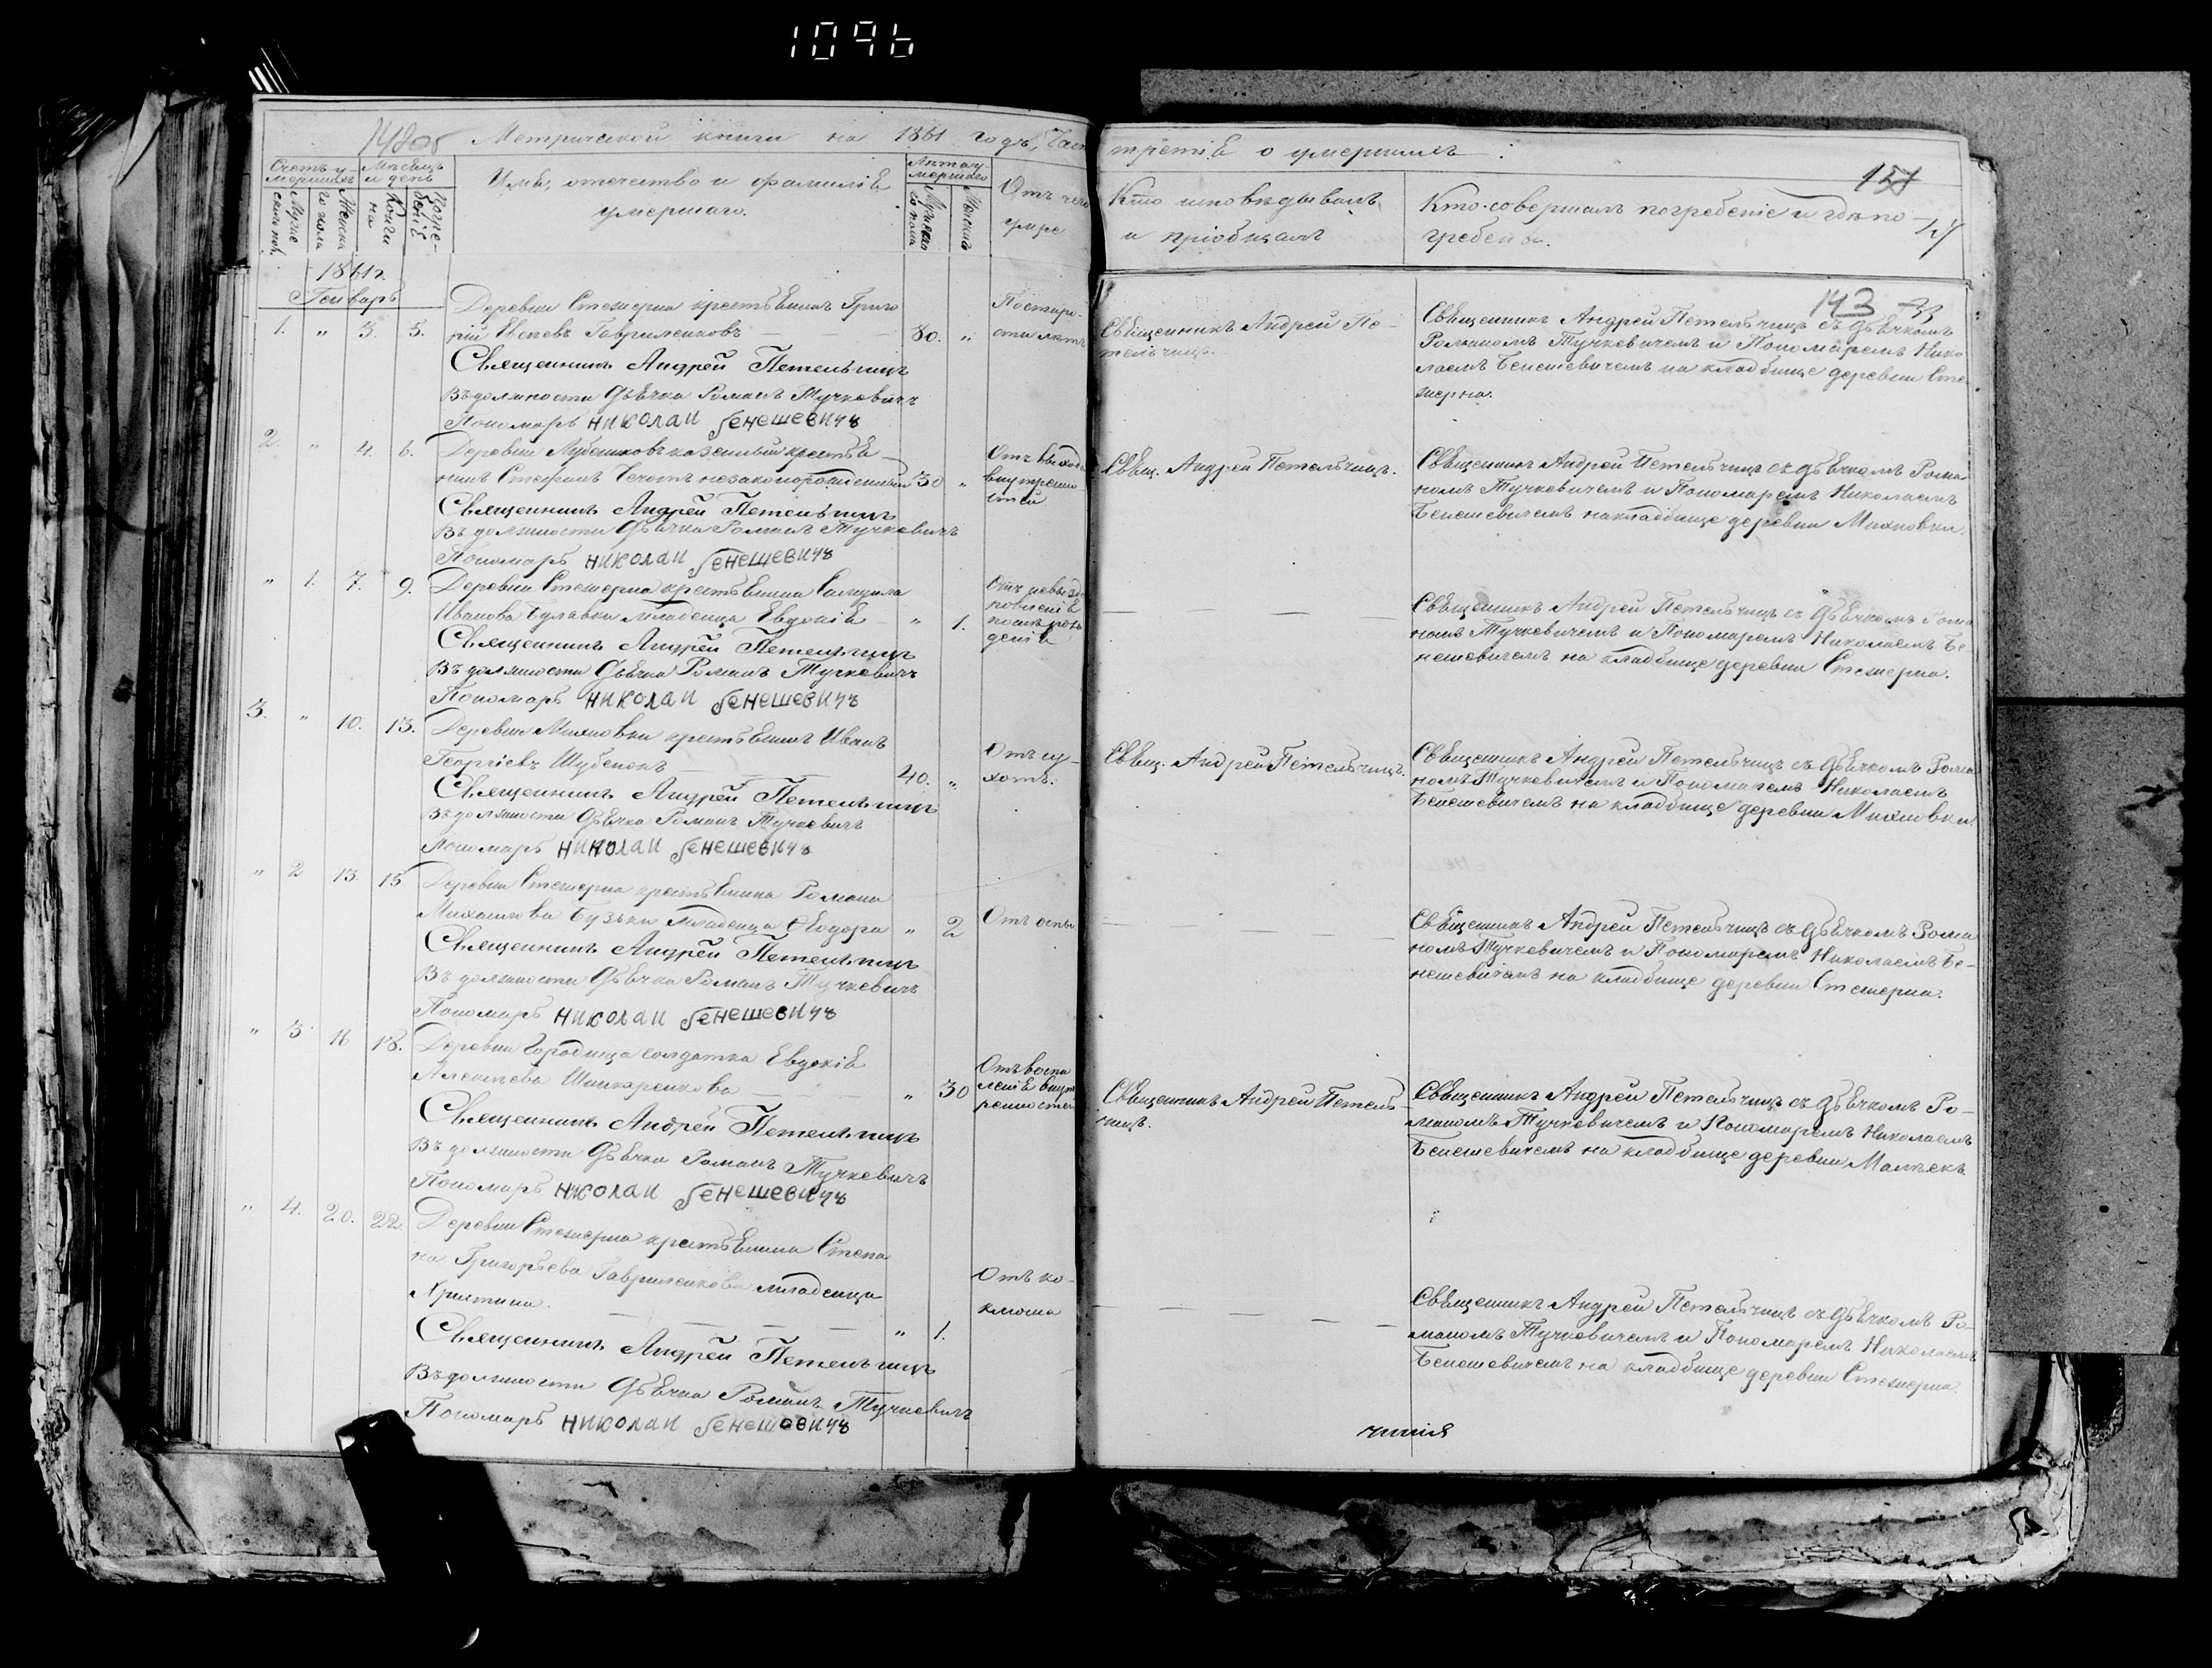 1096
142об Метрической книги на 1861 годъ, Част
третія о умершихъ:
Счетъ у-
мершихъ
Мѣсяцъ
и день
Имя, отечество и фамилія
умершаго.
Лѣта у-
мершаго
Отъ чего
умре
Мужескаго пола
Женска
Кончи
на
Погре-
бенія
Мужеска
го пола
Женскаго
Кто исповѣдывалъ
и пріобщалъ
Кто совершалъ погребеніе и гдѣ по-
гребены.
151
143
33
1861г.
Генварь
1. " 3. 5. Деревни Стежерна крестьянинъ Григо
рій Гавриленковъ 80. "
Постаро-
сти лѣтъ
Священникъ Андрей Петельчицъ
Въ должности Дьячка Романъ Тучкевичъ
Пономарь Николай Бенешевичъ
Священникъ Андрей Пе-
тельчицъ.
Священникъ Андрей Петельчицъ съ Дьячкомъ
Романомъ Тучкевичемъ и Пономаремъ Нико
лаемъ Бенешевичемъ на кладбище деревни Сте-
жерна.
2. " 4. 6. Деревни казенный крестья-
нинъ Стефанъ незаконорожденный 30 "
Отъ
внутренно-
стей
Священникъ Андрей Петельчицъ
Въ должности Дьячка Романъ Тучкевичъ
Пономарь Николай Бенешевичъ
Свящ. Андрей Петельчицъ.
Священникъ Андрей Петельчицъ съ Дьячкомъ Рома-
номъ Тучкевичемъ и Пономаремъ Николаемъ
Бенешевичемъ на кладбище деревни Михновки.
" 1. 7. 9. Деревни Стежерна крестьянина
Иванова Булавки младенца Евдокія " 1.
послѣ рож
денія
Священникъ Андрей Петельчицъ
Въ должности Дьячка Романъ Тучкевичъ
Пономарь Николай Бенешевичъ
Священникъ Андрей Петельчицъ съ Дьячкомъ Рома
номъ Тучкевичемъ и Пономаремъ Николаемъ Бе-
нешевичемъ на кладбище деревни Стежерна.
3. " 10. 13. Деревни Михновки крестьянинъ Иванъ
Георгіевъ Шубенокъ 40. "
Отъ су-
хотъ.
Священникъ Андрей Петельчицъ
Въ должности Дьячка Романъ Тучкевичъ
Пономарь Николай Бенешевичъ
Свящ. Андрей Петельчицъ.
Священникъ Андрей Петельчицъ съ Дьячкомъ Рома
номъ Тучкевичемъ и Пономаремъ Николаемъ
Бенешевичемъ на кладбище деревни Михновки.
" 2 13. 15 Деревни Стежерна крестьянина Романа
Михайлова Бузьки младенца Ѳеодора " 2
Отъ оспы
Священникъ Андрей Петельчицъ
Въ должности Дьячка Романъ Тучкевичъ
Пономарь Николай Бенешевичъ
Священникъ Андрей Петельчицъ съ Дьячкомъ Рома
номъ Тучкевичемъ и Пономаремъ Николаемъ Бе-
нешевичемъ на кладбище деревни Стежерна.
" 3 16 18. Деревни Городища солдатка Евдокія
Алексѣева Шинкаренкова " 30
Отъ воспа
ленія внут
ренностей
Священникъ Андрей Петельчицъ
Въ должности Дьячка Романъ Тучкевичъ
Пономарь Николай Бенешевичъ
Священникъ Андрей Петель-
чицъ.
Священникъ Андрей Петельчицъ съ Дьячкомъ Ро-
маномъ Тучкевичемъ и Пономаремъ Николаемъ
Бенешевичемъ на кладбище деревни
" 4. 20. 22. Деревни Стежерна крестьянина Степа
на Григорьева Гавриленкова младенца
Христина. " 1.
Отъ ко-
клюша
Священникъ Андрей Петельчицъ
Въ должности Дьячка Романъ Тучкевичъ
Пономарь Николай Бенешевичъ
Священникъ Андрей Петельчицъ съ Дьячкомъ Ро-
маномъ Тучкевичемъ и Пономаремъ Николаемъ
Бенешевичемъ на кладбище деревни Стежерна.